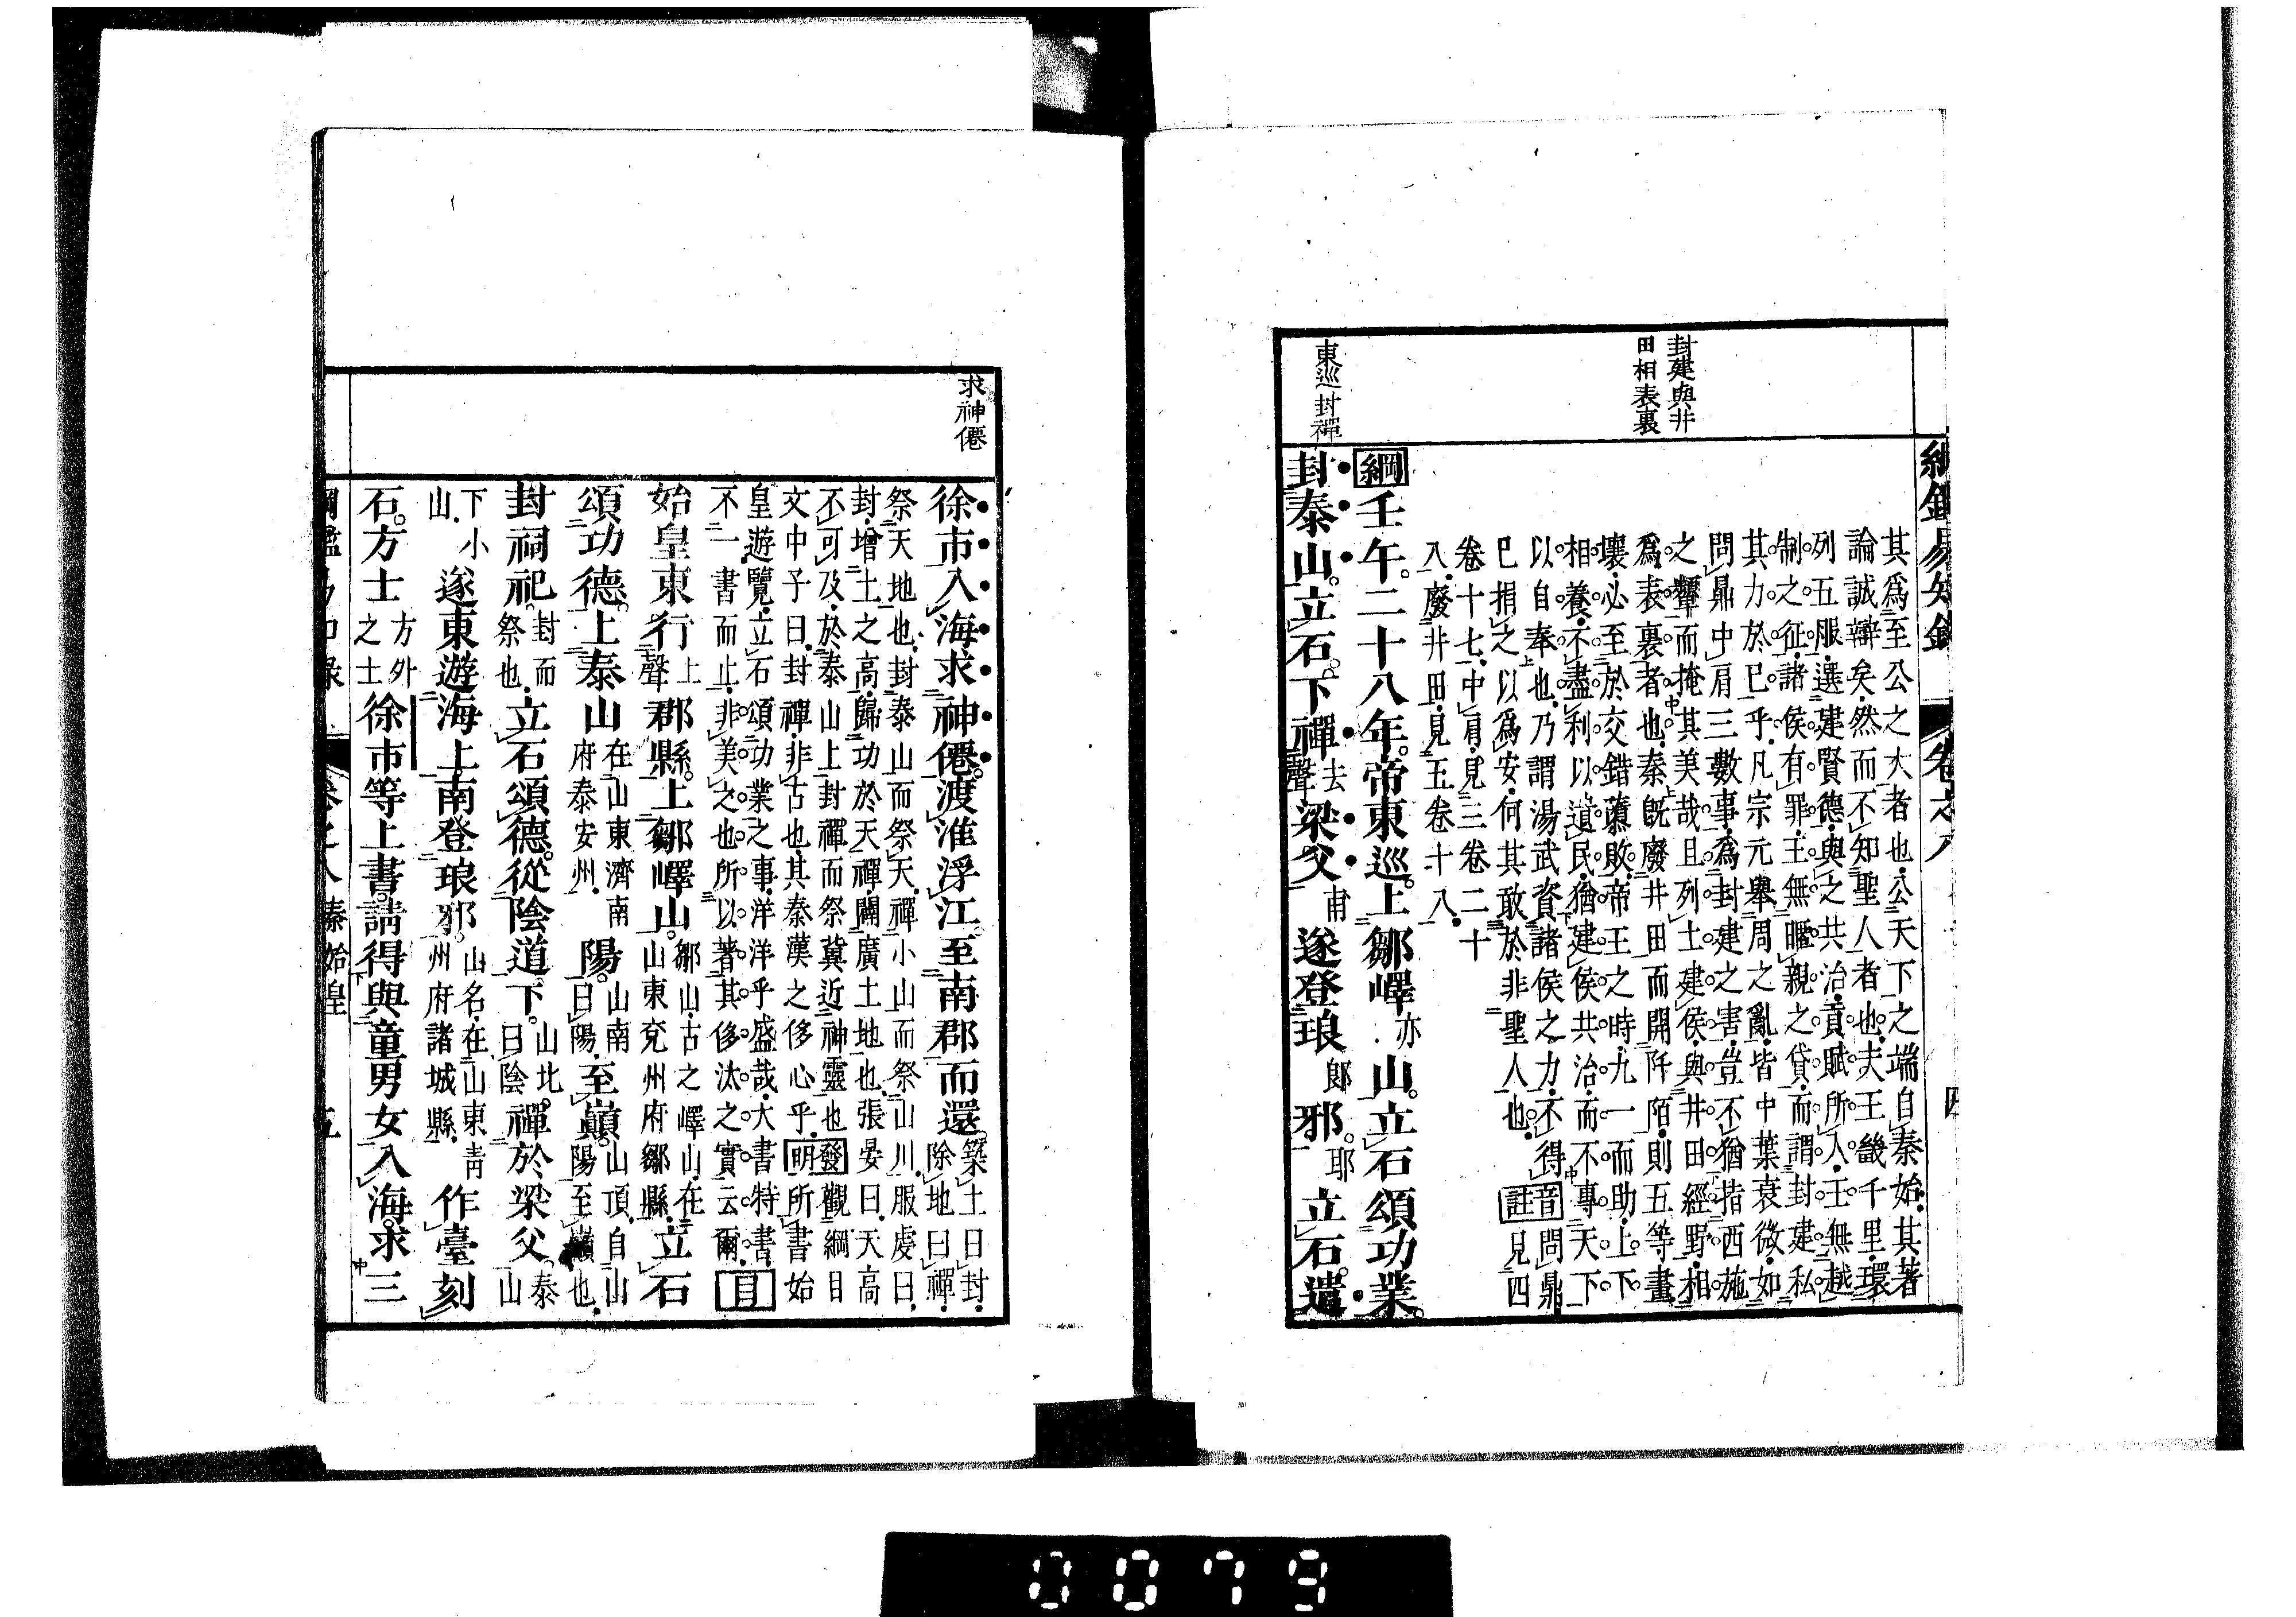 綱鑑易知錄 卷之八 四
封建與井
田相表裏
東巡封禪
其爲至公之大者也公天下之端自秦始其著
論誠辯矣然而不知聖人者也夫王畿千里環
列五服選建賢德與之共治貢賦所入壬無越
制之征諸侯有罪王無暱親之貸而謂封建私
其力於已乎凡宗元舉周之亂皆中葉衰微如
問鼎中肩三數事爲封建之害豈不猶指西施
之顰而掩其美哉且列士建侯與井田經野相
爲表裏者也秦旣廢井田而開阡陌則五等畫
壞必至於交錯隳敗帝王之時九一而助上下
相養不盡利以遺民猶建侯共治而不專天下
以自奉也乃謂湯武資諸侯之力不得音問鼎
巳捐之以爲安何其敢於非聖人也註見四
卷十七中肩見三卷二十
八廢井田見五卷十八
綱壬午二十八年帝東巡上鄒嶧亦山立石頌功業
封泰山立石下禪去聲梁父甫遂登琅郞邪耶立石遣
求神僊
徐市入海求神僊渡淮浮江至南郡而還築土曰封除地曰禪
祭天地也封泰山而祭天禪小山而祭山川服虔曰
封增土之高歸功於天禪闡廣土地也張晏曰天高
不可及於泰山上封禪而祭冀近神靈也發觀綱目
文中子曰封禪非古也其秦漢之侈心乎明所書始
皇遊覽立石頌功業之事洋洋乎盛哉大書特書
不一書而止非美之也所以著其侈汰之實云爾目
始皇東行上聲郡縣上鄒嶧山鄒山古之嶧山在山東兗州府鄒縣立石
頌功德上泰山在山東濟南府泰安州陽山南曰陽至巔山頂自山陽至巔也
封祠祀封而祭也立石頌德從陰道下山北曰陰禪於梁父泰山
下小山遂東遊海上南登琅邪山名在山東靑州府諸城縣作臺刻
石方士方外之士徐市等上書請得與童男女入海求三
綱鑑易知錄 卷之八 秦始皇 五
0079